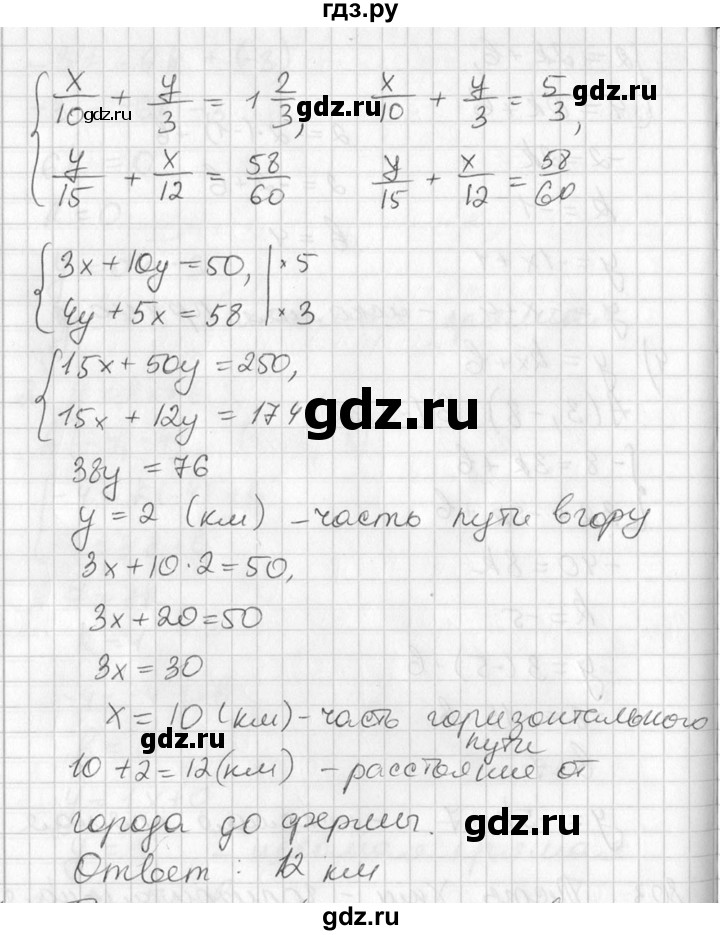 гдз.ру
x/10 + y/3 = 1 2/3,    x/10 + y/3 = 5/3,
y/15 + x/12 = 58/60    y/15 + x/12 = 58/60
gdz.ru gdz.ru
3x + 10y = 50, | · 5
4y + 5x = 58 | · 3
15x + 50y = 250,
15x + 12y = 174
gdz.ru
38y = 76
y = 2 (км) – часть пути вгору
3x + 10 · 2 = 50,
3x + 20 = 50
3x = 30
x = 10 (км) – часть горизонтального
пути
gdz.ru
10 + 2 = 12 (км) – расстояние от
города до фермы.
gdz.ru
Ответ : 12 км
gdz.ru